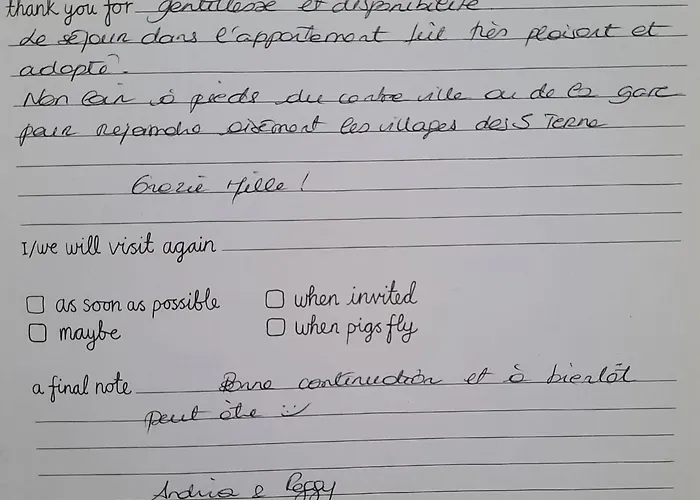 thank you for gentillesse et disponibilité
de séjour dans l'appartement fût très plaisant et
adapté.
Non loin à pieds du centre ville ou de la gare
pour rejoindre aisément les villages des 5 Terre
Grazie Mille !
I/we will visit again
as soon as possible
when invited
maybe
when pigs fly
a final note Bonne continuation et à bientôt
peut être :-)
Andrea & Peggy